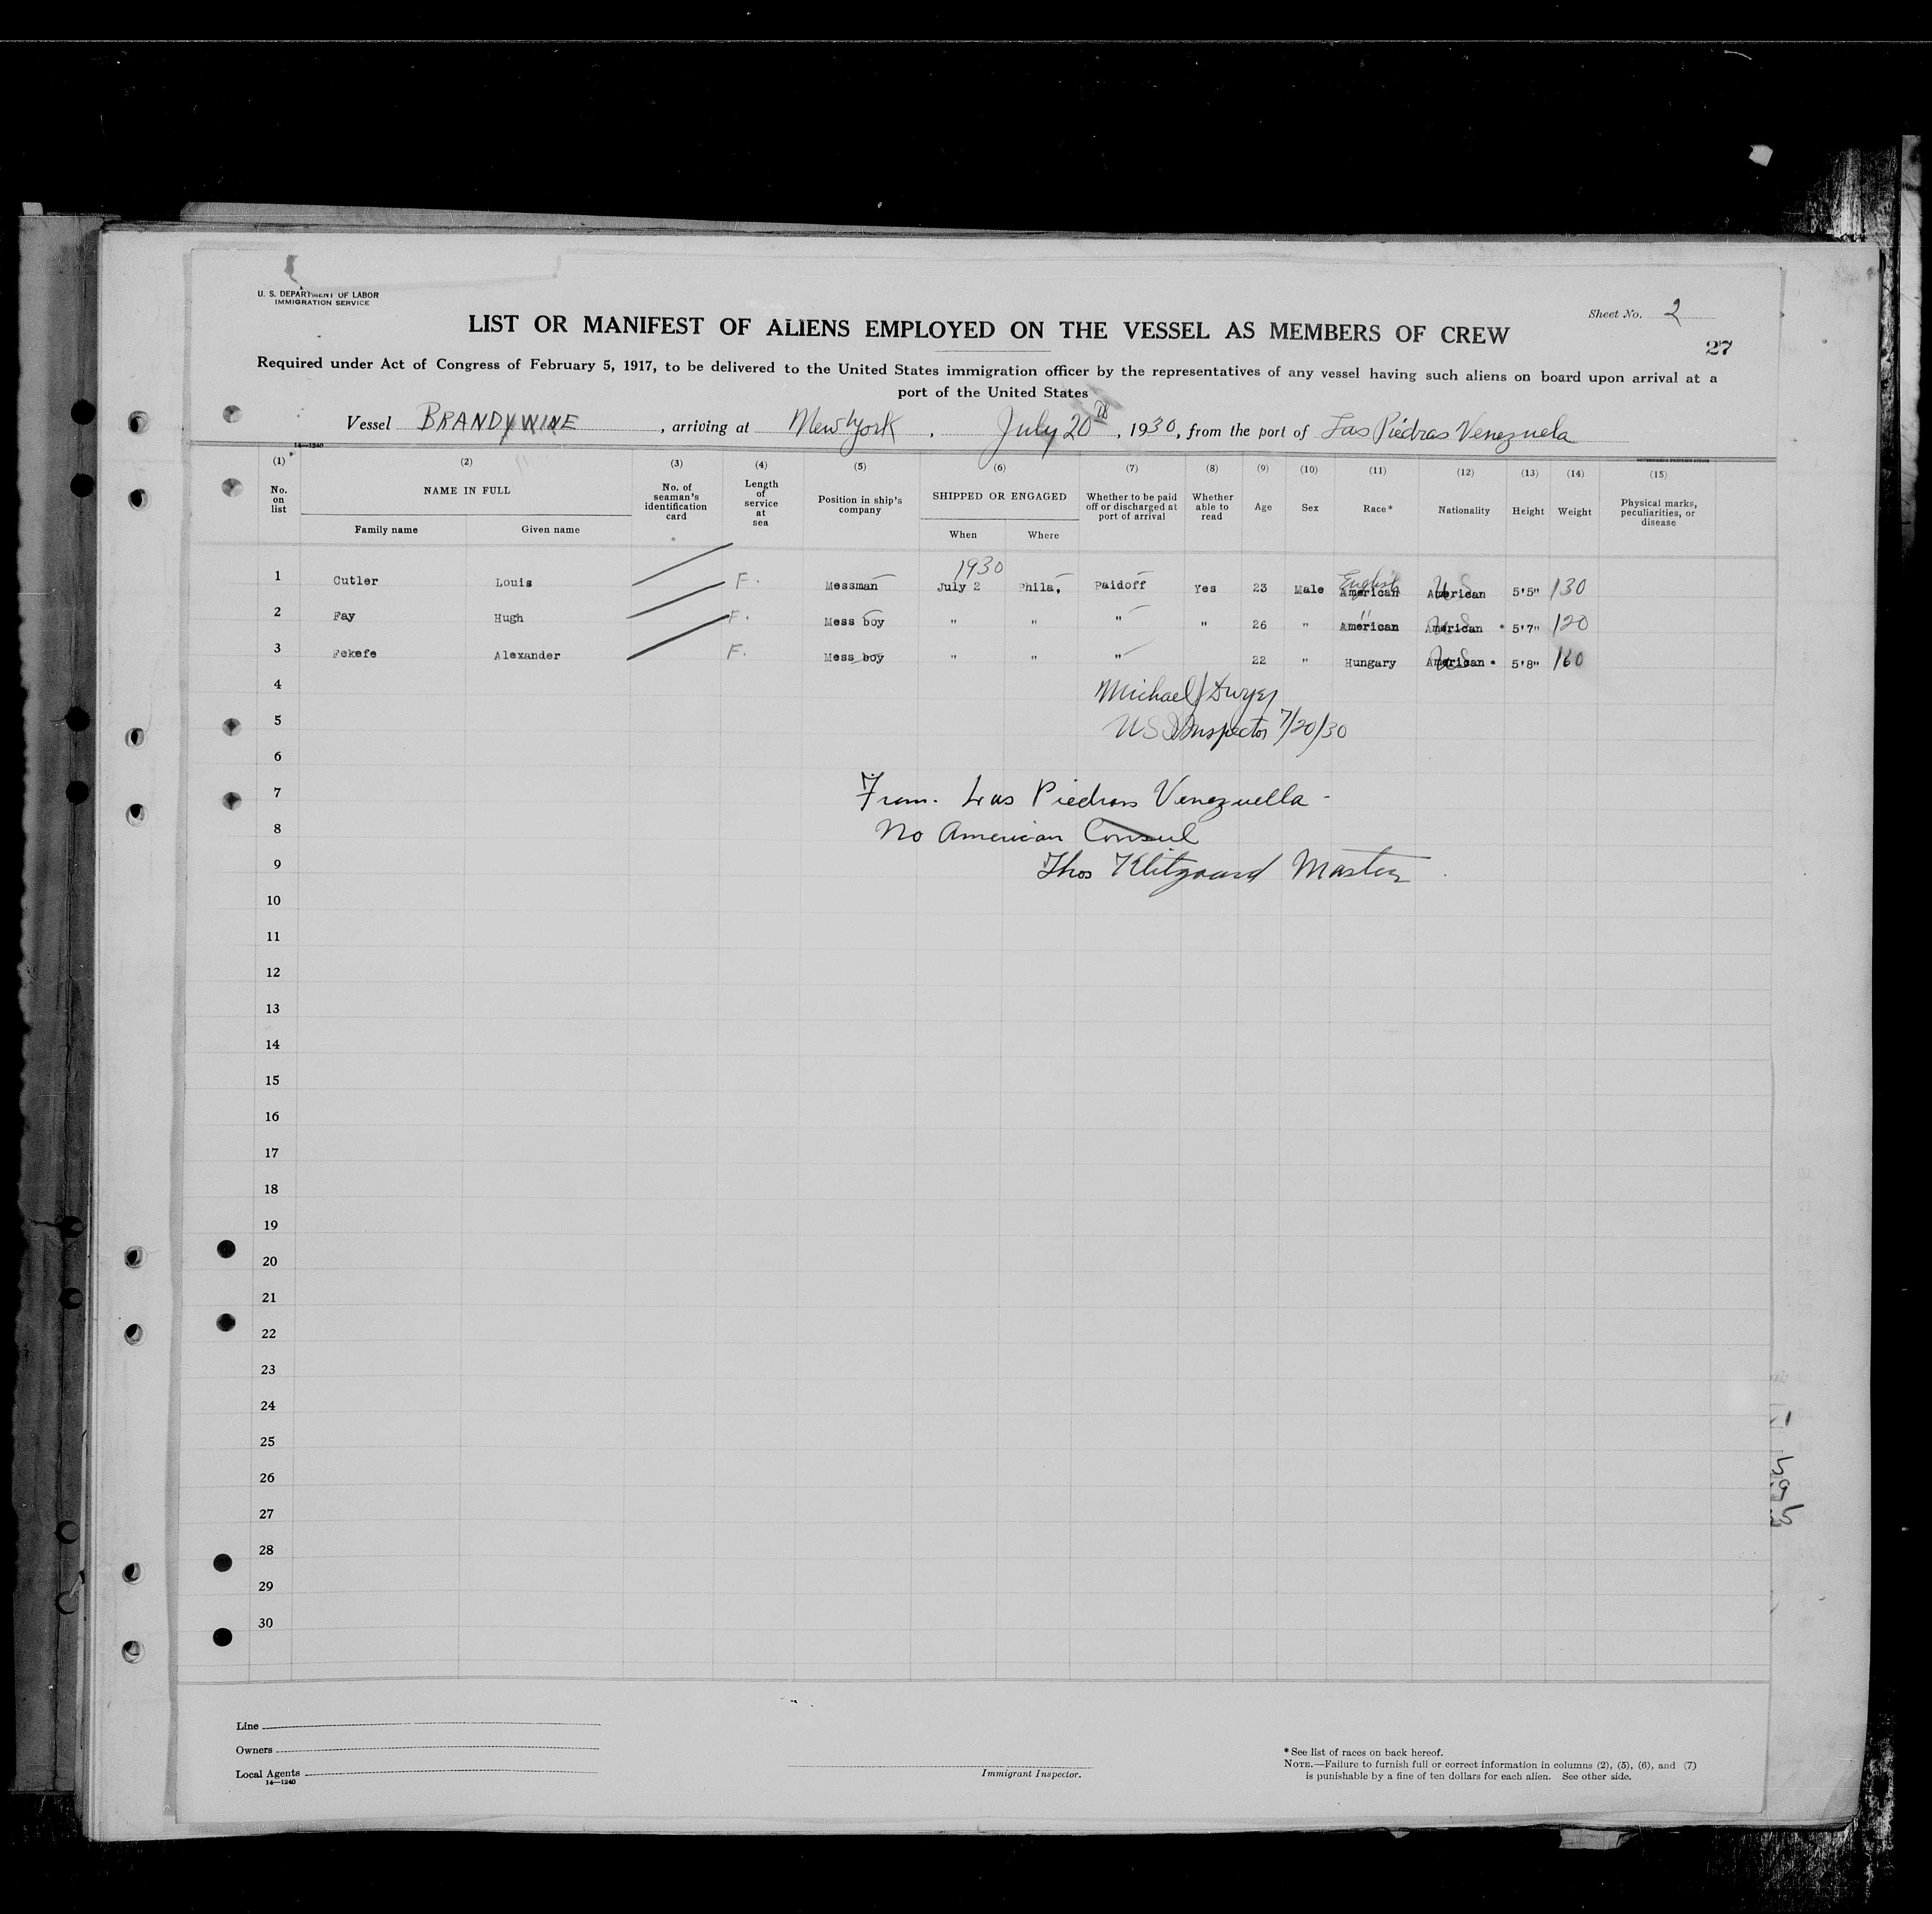 U. S. DEPARTMENT OF LABOR
IMMIGRATION SERVICE
Sheet No. 2
LIST OR MANIFEST OF ALIENS EMPLOYED ON THE VESSEL AS MEMBERS OF CREW
27
Required under Act of Congress of February 5, 1917, to be delivered to the United States immigration officer by the representatives of any vessel having such aliens on board upon arrival at a
port of the United States
Vessel BRANDYWINE, arriving at New York, July 20th, 1930, from the port of Las Piedras Venezuela
14—1240
(1) (2) (3) (4) (5) (6) (7) (8) (9) (10) (11) (12) (13) (14) (15)
No. on list NAME IN FULL No. of seaman's identification card Length of service at sea Position in ship's company SHIPPED OR ENGAGED Whether to be paid off or discharged at port of arrival Whether able to read Age Sex Race* Nationality Height Weight Physical marks, peculiarities, or disease
Family name Given name When Where
1930
1 Cutler Louis F. Messman July 2 Phila. Paidoff Yes 23 Male English American U S American 5'5" 130
2 Fay Hugh F. Mess boy " " " " 26 " " American U S American 5'7" 120
3 Fekefe Alexander F. Mess boy " " " 22 " Hungary U S American 5'8" 160
4 Michael J Dwyer
5 U S Inspector 7/20/30
6
7 From. Las Piedras Venezuella -
8 No American Consul
9 Thos Klitgaard Master
10
11
12
13
14
15
16
17
18
19
20
21
22
23
24
25
26
27
28
29
30
Line
Owners
Local Agents
14—1240
Immigrant Inspector.
* See list of races on back hereof.
NOTE.—Failure to furnish full or correct information in columns (2), (5), (6), and (7)
is punishable by a fine of ten dollars for each alien. See other side.